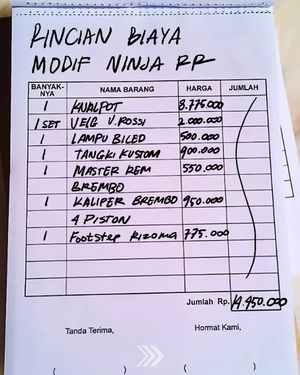 RINCIAN BIAYA
MODIF NINJA RR
BANYAK-NYA NAMA BARANG HARGA JUMLAH
1 KNALPOT 8.775.000
1 SET VELG V.ROSSI 2.000.000
1 LAMPU BILED 500.000
1 TANGKI KUSTOM 900.000
1 MASTER REM 550.000
BREMBO
1 KALIPER BREMBO 950.000
4 PISTON
1 Footstep Rizoma 775.000
Jumlah Rp. 14.450.000
Tanda Terima, Hormat Kami,
( ) ( )